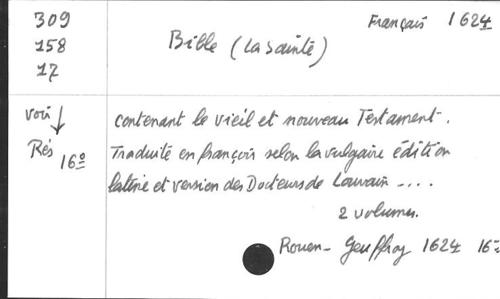 309
158
17
Français 1624
Bible (La Sainte)
voir
Rés 16º
contenant le vieil et nouveau Testament.
Traduite en françois selon la vulgaire édition
latine et version des Docteurs de Louvain ....
2 volumes.
Rouen - Geuffroy 1624 16º